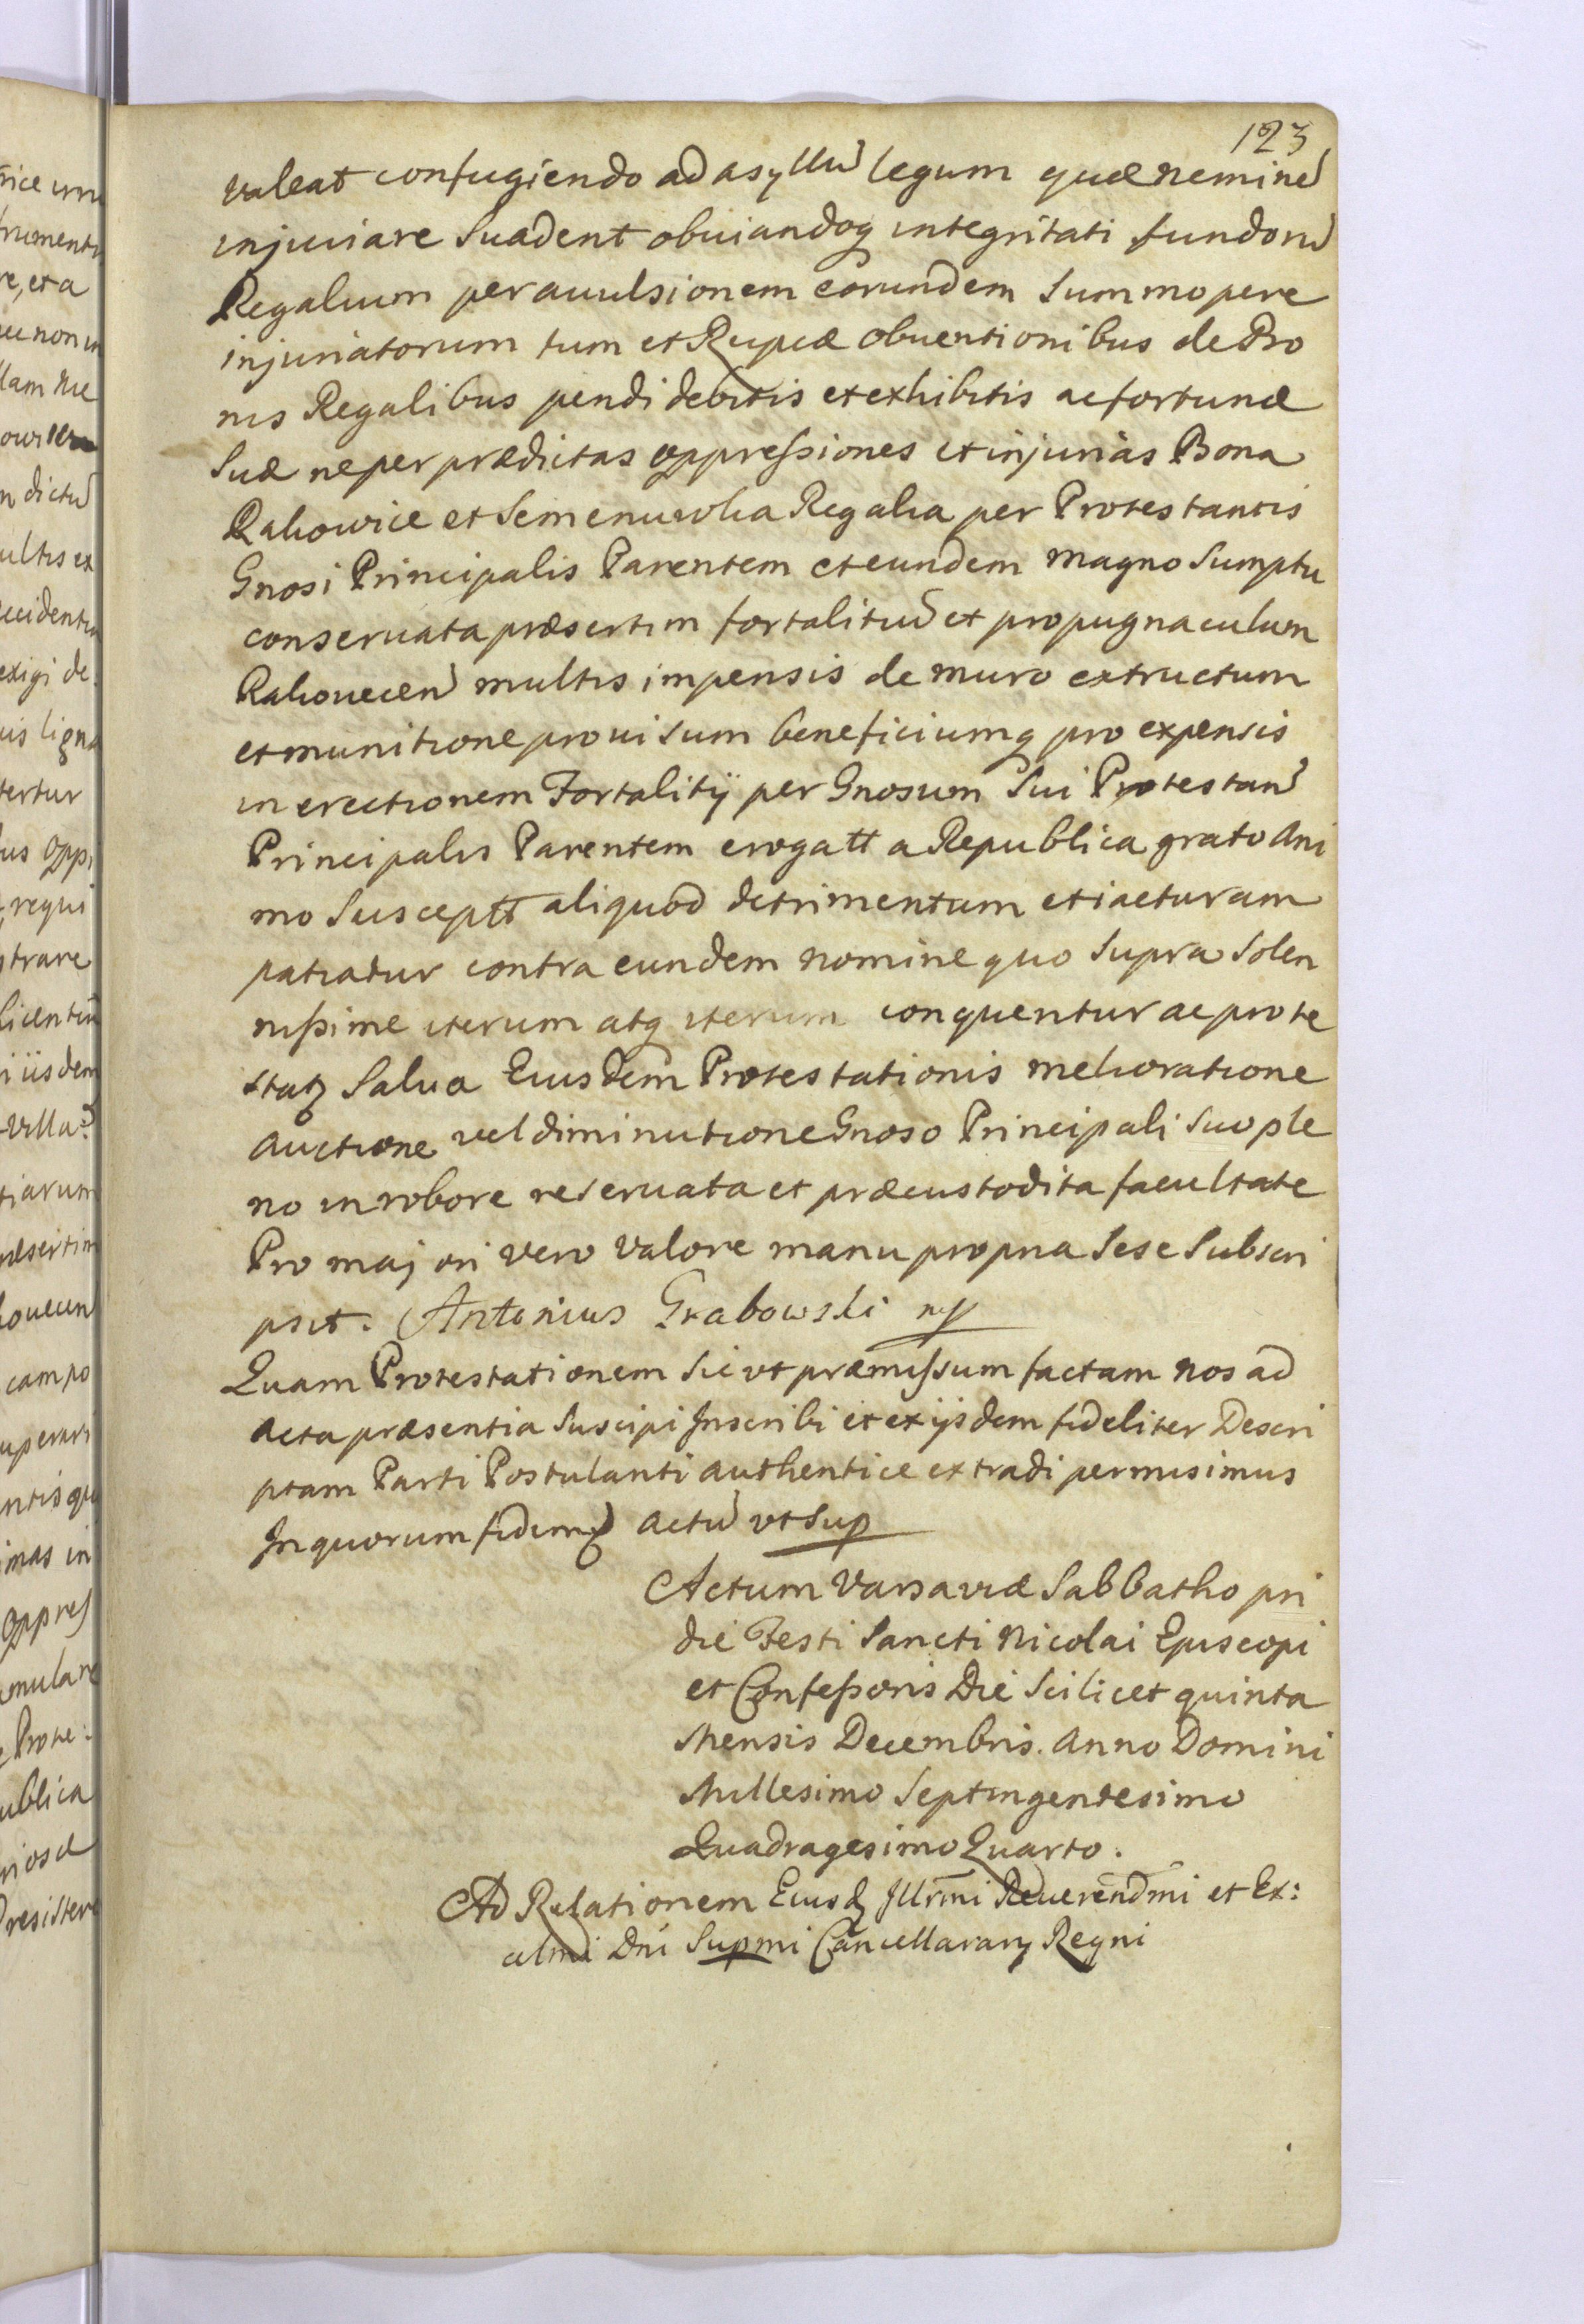 123
valeat confugiendo ad asyllũ legum quæ neminẽ
injuriare suadent obuiandoq integritati fundorũ
Regalium per auulsionem eorundem summopere
injuriatorum tum et Reipcæ obuentionibus de Bo
nis Regalibus pendi debitis et exhibitis ac fortunæ
suæ ne per prædictas oppressiones et injurias Bona
Rahowice et Semenuwka Regalia per Protestantis
Gnosi Principalis Parentem et eundem magno sumptu
conseruata præsertim fortalitiũ et propugnaculum
Rahouecen multis impensis de muro extructum
et munitione prouisum beneficiumq pro expensis
in erectionem Fortalitij per Gnosum sui Protestan
Principalis Parentem erogatt a Republica grato ani
mo susceptt aliquod detrimentum et iacturam
patiatur contra eundem nomine quo supra solen
nissime iterum atq iterum conqueritur ac prote
statq salua Eiusdem Protestationis melioratione
auctione vel diminutione Gnoso Principali suo ple
no in robore reseruata et præcustodita facultate
Pro majori vero valore manu propria sese subscri
psit. Antonius Grabowski mp
Quam Protestationem sic vt præmissum factam nos ad
acta præsentia suscipi Inscribi et ex ijsdem fideliter Descri
ptam Parti Postulanti authentice extradi permisimus
In quorum fidem Actũ vt sup
Actum Varsaviæ Sabbatho pri
die Festi Sancti Nicolai Episcopi
et Confessoris Die scilicet quinta
Mensis Decembris. Anno Domini
Millesimo Septingentesimo
Quadragesimo Quarto.
Ad Relationem Eiusd Illrmi Reuerendmi et Ex:
celmi Dni Supmi Cancellarary Regni